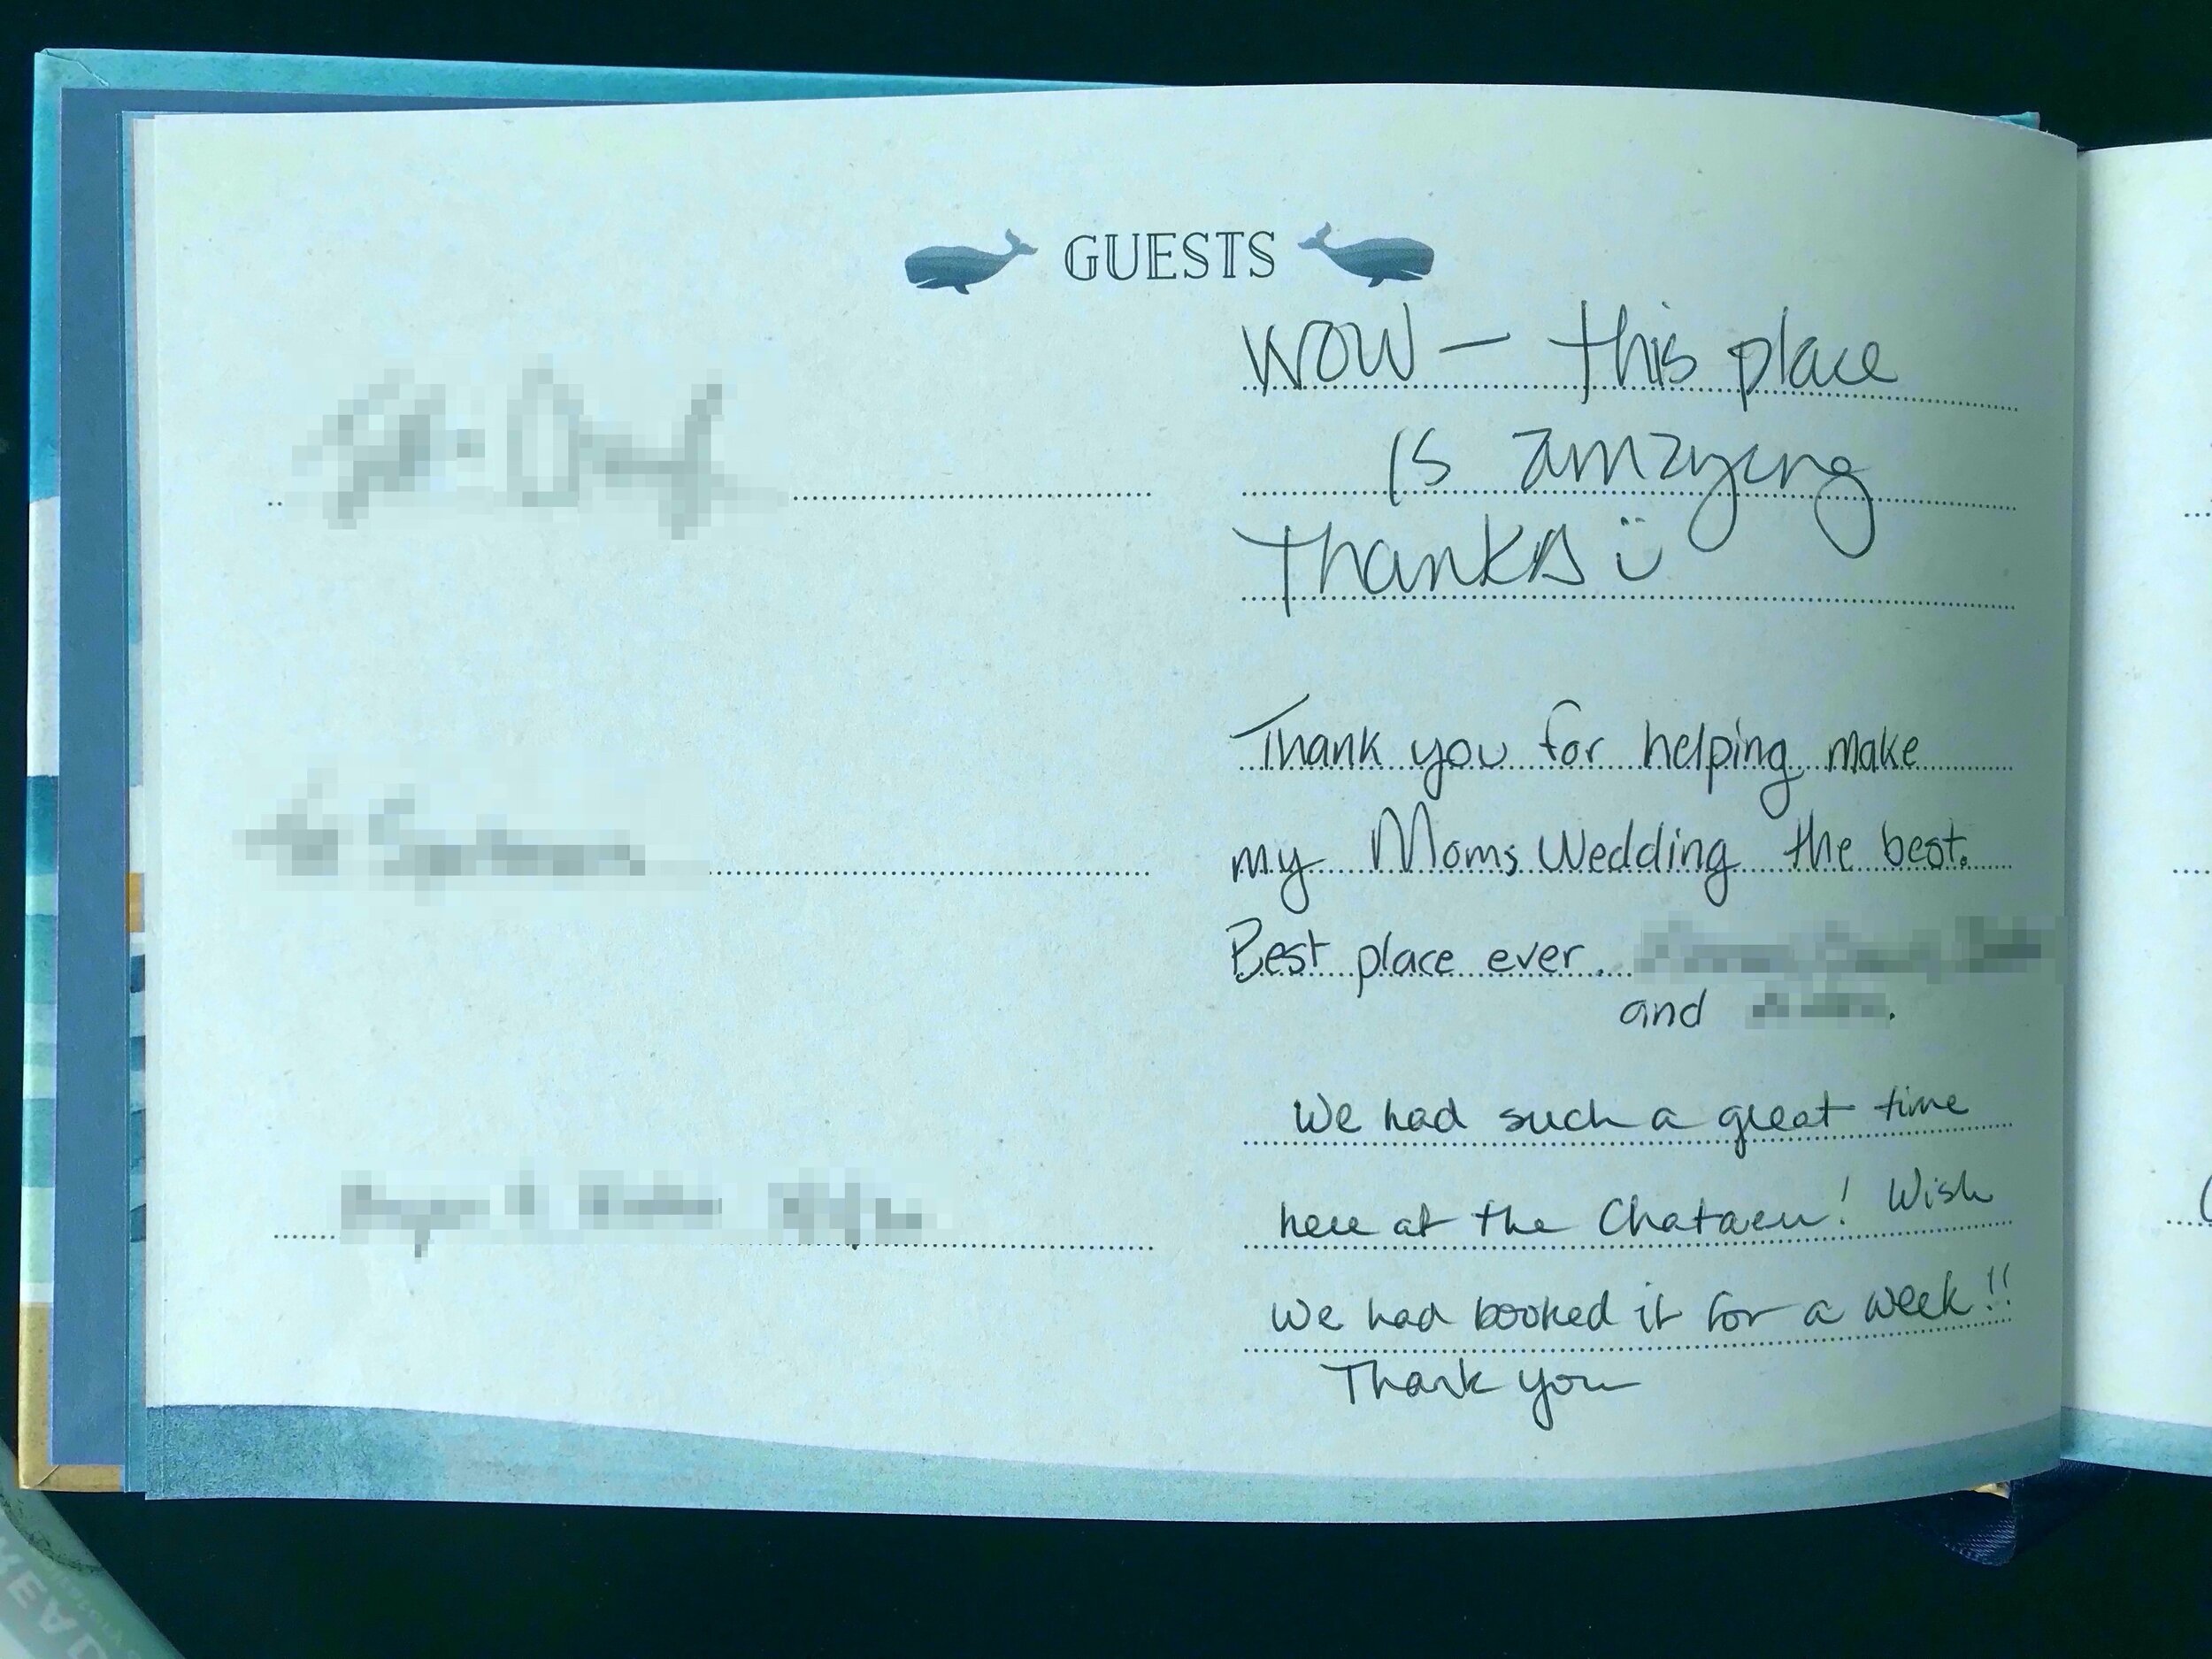 GUESTS
WOW - this place
is amazing
Thanks ü
Thank you for helping make
my Moms Wedding the best.
Best place ever.
and
We had such a great time
here at the Chataeu! Wish
We had booked it for a week!!
Thank you
READ